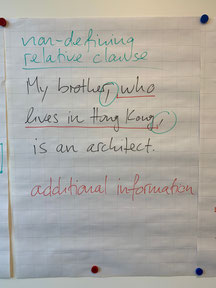 non-defining
relative clause
My brother, who
lives in Hong Kong,
is an architect.
additional information